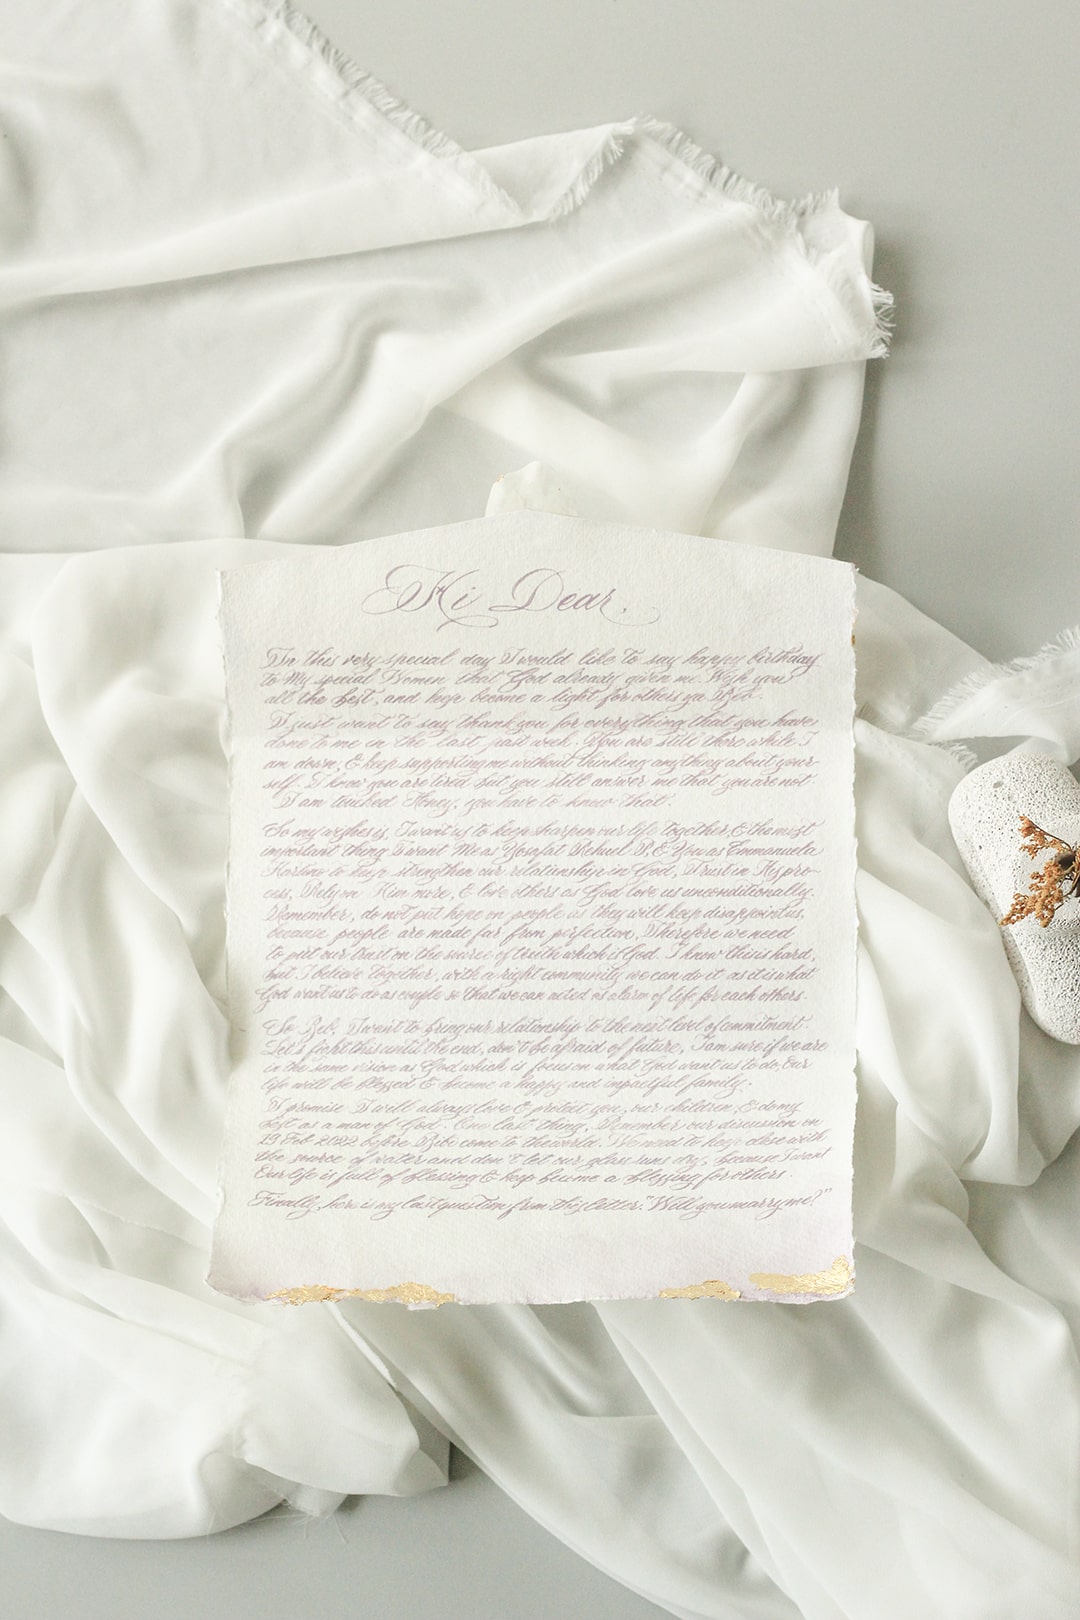 Hi Dear,
In this very special day I would like to say happy birthday
to My special Women that God already given me. Wish you
all the best, and keep become a light for others ya Beb.
I just want to say thank you for everything that you have
done to me in the last past week. You are still there while I
am down, & keep supporting me without thinking anything about your-
self. I know you are tired but you still answer me that you are not
I am touched Honey, you have to know that.
So my wishes is, I want us to keep sharpen our life together, & the most
important thing I want Me as Yosafat Rehuel P, & You as Emmanuela
to keep strengthen our relationship in God, Trust in His pro-
cess, Rely on Him more, & love others as God love us unconditionally.
Remember, do not put hope on people as they will keep disappoint us,
because people are made far from perfection. Therefore we need
to put our trust on the source of truth which is God. I know this is hard,
but I believe together, with a right community we can do it as it is what
God want us to do as couple so that we can acted as alarm of life for each others.
So Beb, I want to bring our relationship to the next level of commitment.
Let's fight this until the end, don't be afraid of future, I am sure if we are
in the same vision as God which is focus on what God want us to do, Our
life will be blessed & become a happy and impactful family.
I promise I will always love & protect you, our children, & do my
best as a man of God. One last thing, Remember our discussion on
19 Feb 2022 before Bibi come to the world. We need to keep close with
the source of water and don't let our glass runs dry, because I want
Our life is full of blessing & keep become a blessing for others.
Finally, here is my last question from this letter: "Will you marry me?"